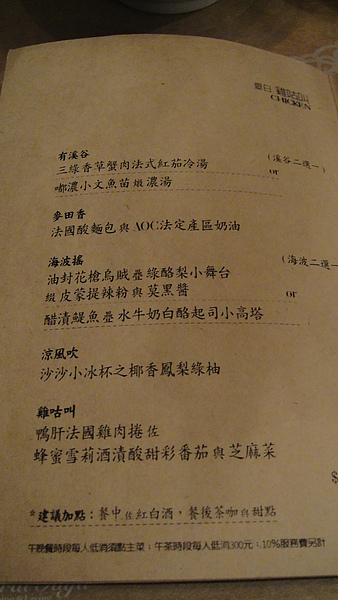 夏日 雞咕叫
CHICKEN
有溪谷
三綠香草蟹肉法式紅茄冷湯 (溪谷二選一)
or
嘟濃小文魚苗燉濃湯
麥田香
法國酸麵包與AOC法定產區奶油
海波搖 (海波二選一
油封花槍烏賊疊綠酪梨小舞台
綴皮蒙提辣粉與莫黑醬 or
醋漬鯷魚疊水牛奶白酪起司小高塔
涼風吹
沙沙小冰杯之椰香鳳梨綠柚
雞咕叫
鴨肝法國雞肉捲佐
蜂蜜雪莉酒漬酸甜彩番茄與芝麻菜
$
*建議加點：餐中佐紅白酒，餐後茶咖與甜點
午晚餐時段每人低消須點主菜；午茶時段每人低消300元；10%服務費另計